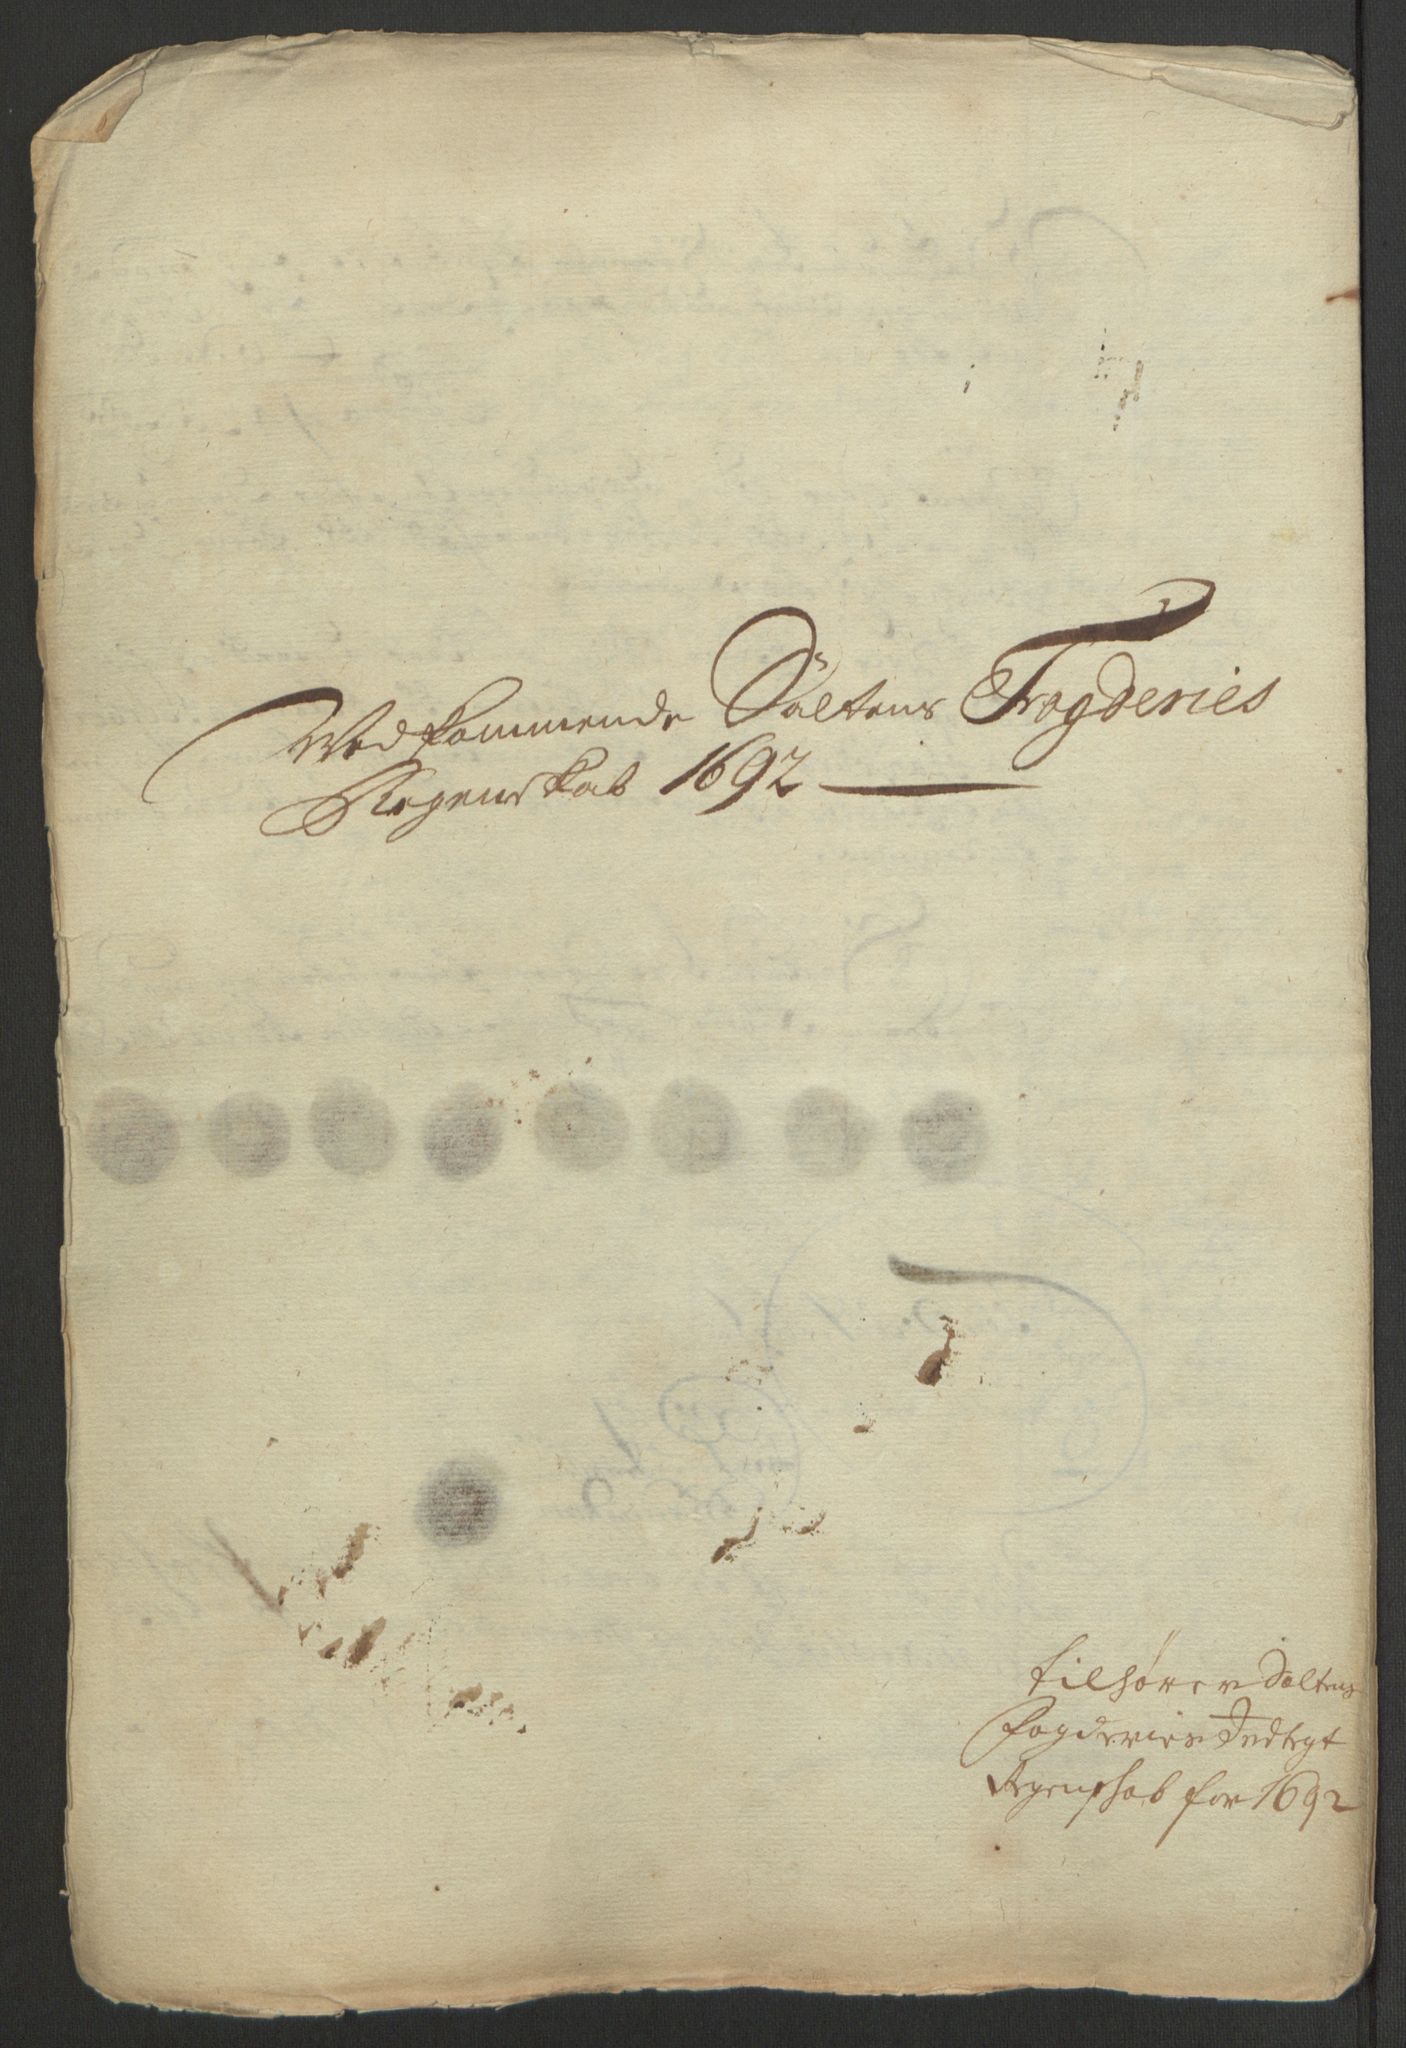 Vedkommende Saltens Fogderies
Regenskab 1692
tilhører Saltens
fogderies Indtegt
Regenskab for 1692